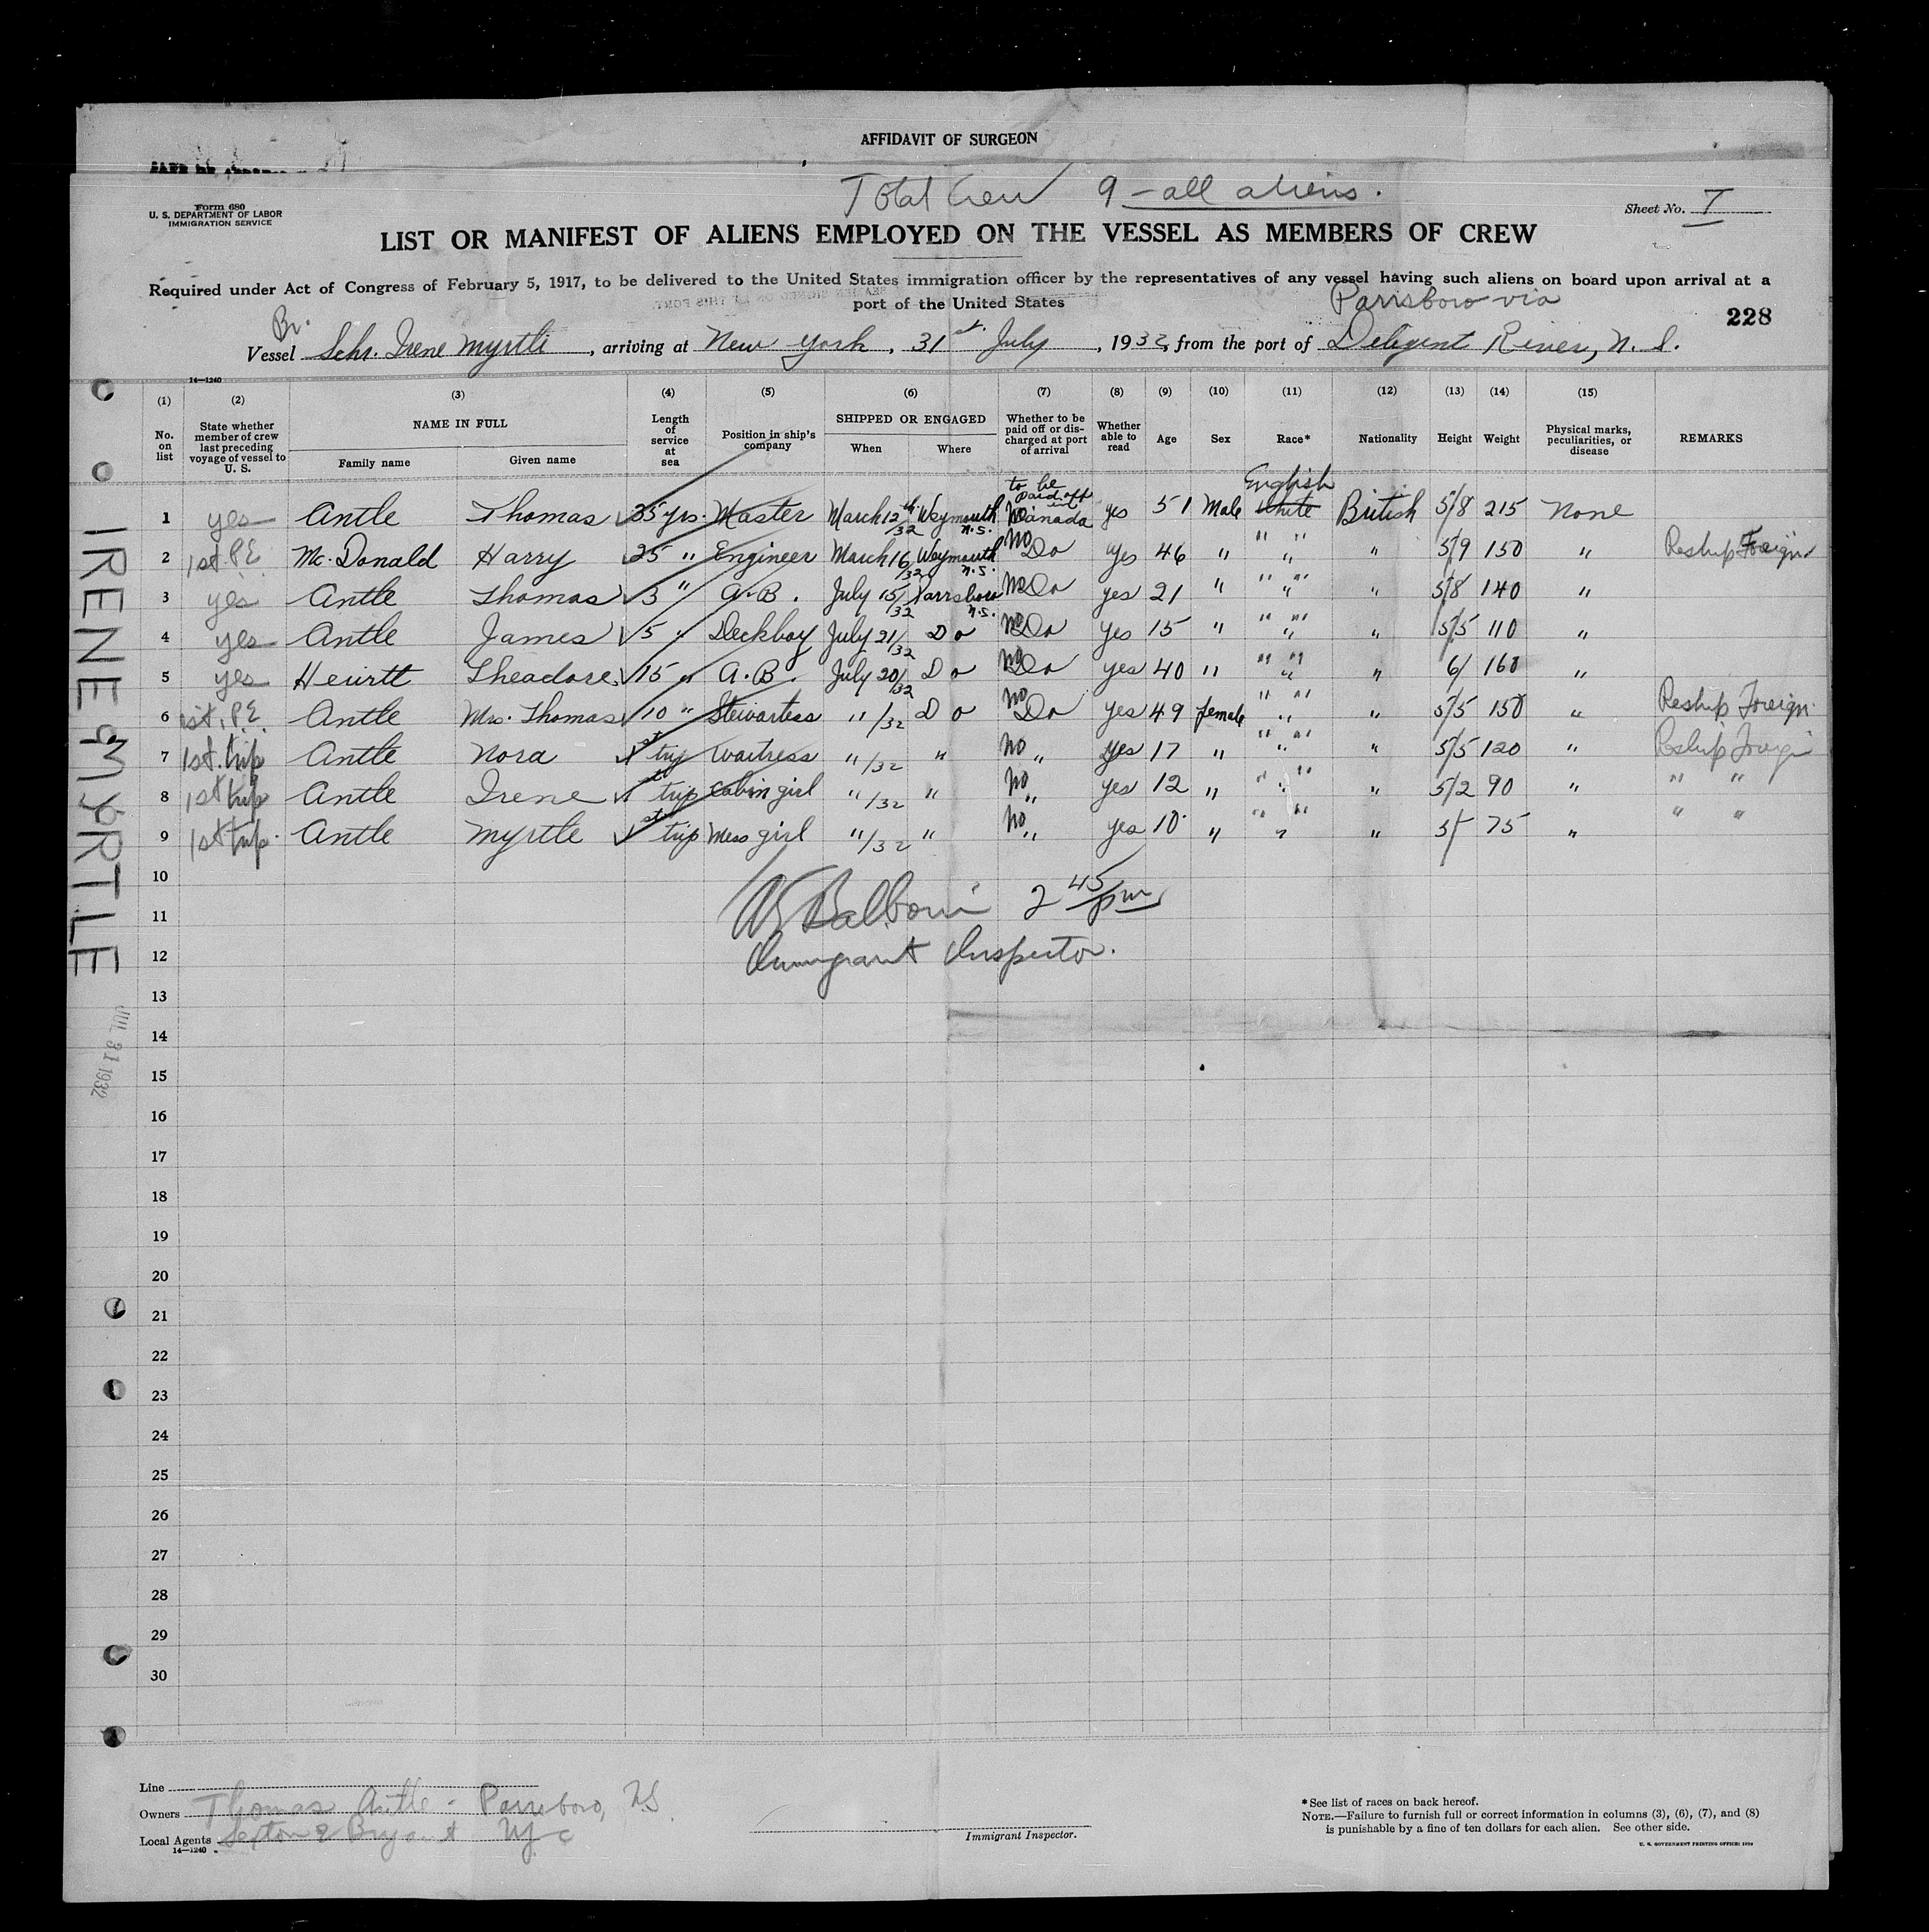 AFFIDAVIT OF SURGEON
Total Crew 9 - all aliens.
Form 680
U. S. DEPARTMENT OF LABOR
IMMIGRATION SERVICE
Sheet No. I
LIST OR MANIFEST OF ALIENS EMPLOYED ON THE VESSEL AS MEMBERS OF CREW
Required under Act of Congress of February 5, 1917, to be delivered to the United States immigration officer by the representatives of any vessel having such aliens on board upon arrival at a
port of the United States
Parrsboro via
228
Br.
Vessel Schr. Irene Myrtle, arriving at New York, 31st July, 1932, from the port of Deligent River, N. S.
14—1240
(1) (2) (3) (4) (5) (6) (7) (8) (9) (10) (11) (12) (13) (14) (15)
No. on list
State whether member of crew last preceding voyage of vessel to U. S.
NAME IN FULL
Family name
Given name
Length of service at sea
Position in ship's company
SHIPPED OR ENGAGED
When
Where
Whether to be paid off or discharged at port of arrival
Whether able to read
Age
Sex
Race*
Nationality
Height
Weight
Physical marks, peculiarities, or disease
REMARKS
to be paid off in English
1 yes Antle Thomas 35 yrs. Master March 12th/32 Weymouth N.S. No Canada yes 51 Male White British 5/8 215 None
2 1st P.E. Mc. Donald Harry 25 " Engineer March 16/32 Weymouth N.S. No Do yes 46 " " " " " 5/9 150 " Reship Foreign
3 yes Antle Thomas 3 " A.B. July 15/32 Parrsboro N.S. No Do yes 21 " " " " " 5/8 140 "
4 yes Antle James 5 " Deckboy July 21/32 Do No Do yes 15 " " " " " 5/5 110 "
5 yes Heurtt Theadore 15 " A.B. July 20/32 Do No Do yes 40 " " " " " 6/ 160 "
6 1st. P.E. Antle Mrs. Thomas 10 " Stewartess " /32 Do No Do yes 49 female " " " " 5/5 150 " Reship Foreign
7 1st. trip Antle Nora 1st trip Waitress " /32 " No " yes 17 " " " " " 5/5 120 " Reship Foreign
8 1st trip Antle Irene 1st trip Cabin girl " /32 " No " yes 12 " " " " " 5/2 90 " " "
9 1st trip. Antle Myrtle 1st trip Mess girl " /32 " No " yes 10 " " " " " 5/ 75 " " "
10
11
2 45/pm
12
Immigrant Inspector.
13
14
15
16
17
18
19
20
21
22
23
24
25
26
27
28
29
30
IRENE MYRTLE
9
JUL 31 1932
Line
Owners Thomas Antle - Parrsboro, N.S.
Local Agents Sexton & Bryant NYC
14—1240
Immigrant Inspector.
*See list of races on back hereof.
NOTE.—Failure to furnish full or correct information in columns (3), (6), (7), and (8)
is punishable by a fine of ten dollars for each alien. See other side.
U. S. GOVERNMENT PRINTING OFFICE: